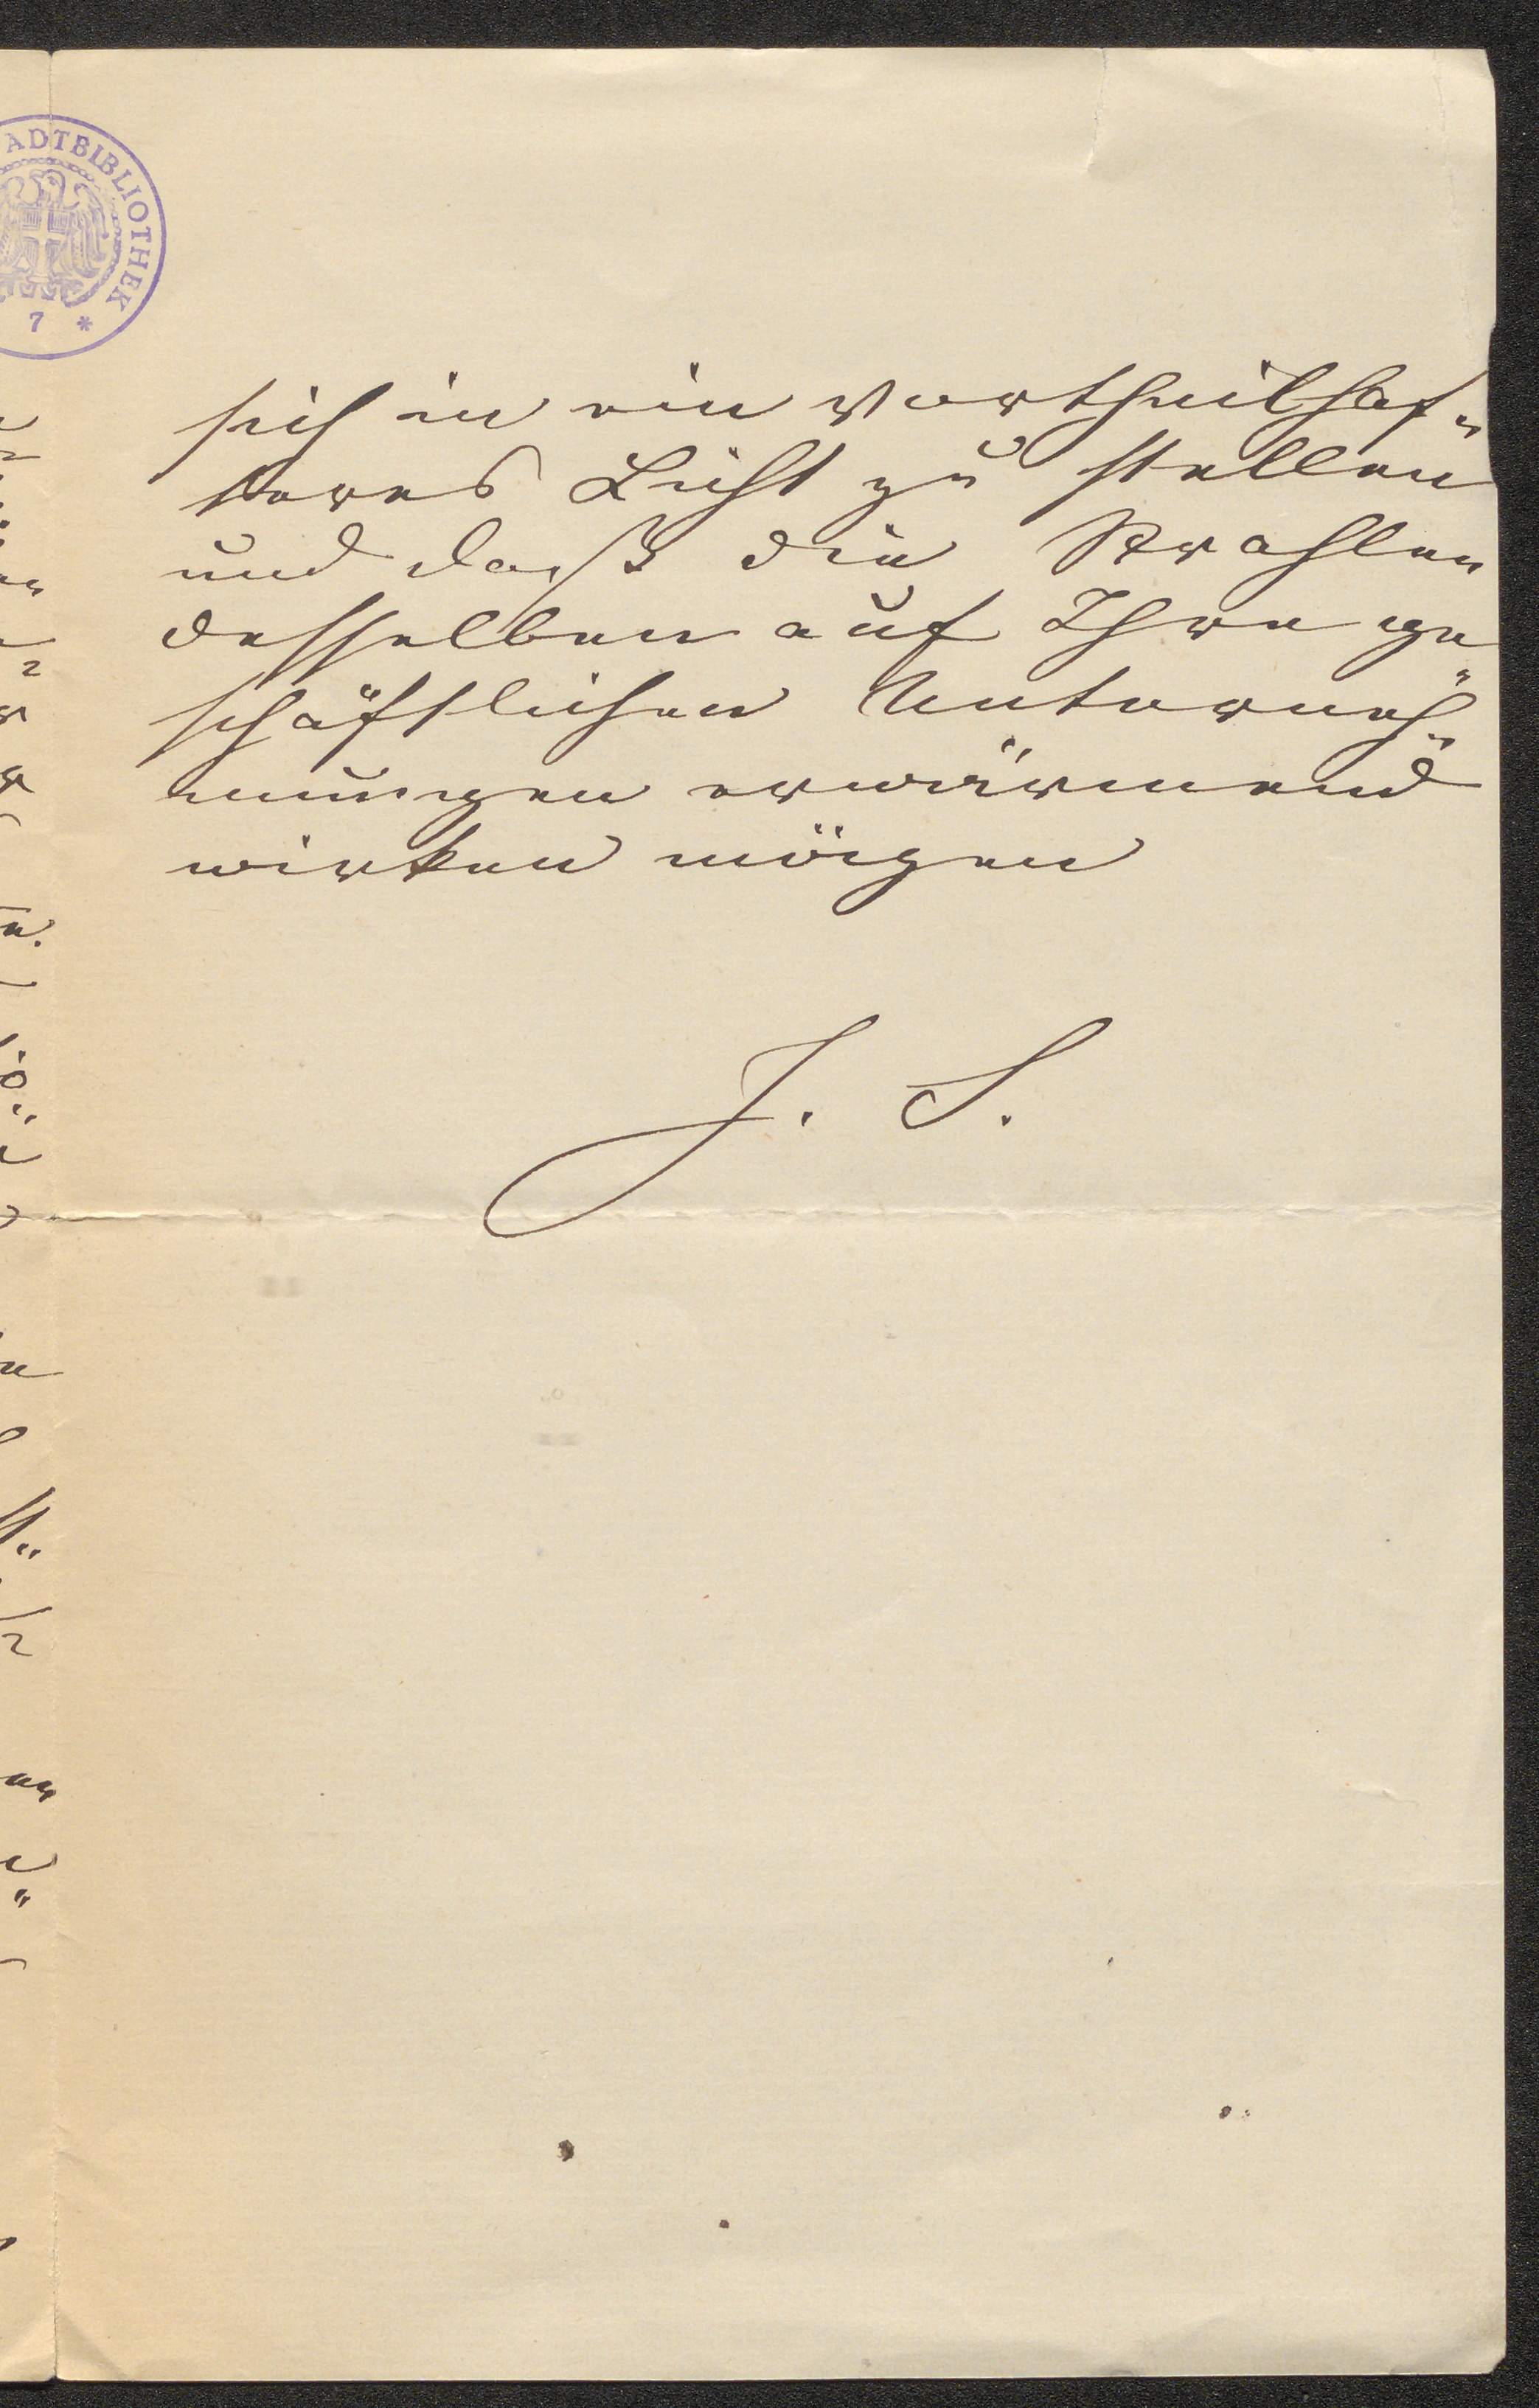 ADTBIBLIOTHEK
7 *
sich in ein vortheilhaf„
teres Licht zu stellen
und daß die Strahlen
desselben auf Ihre ge„
schäftlichen Unterneh„
mungen erwärmend
wirken mögen
J. S.